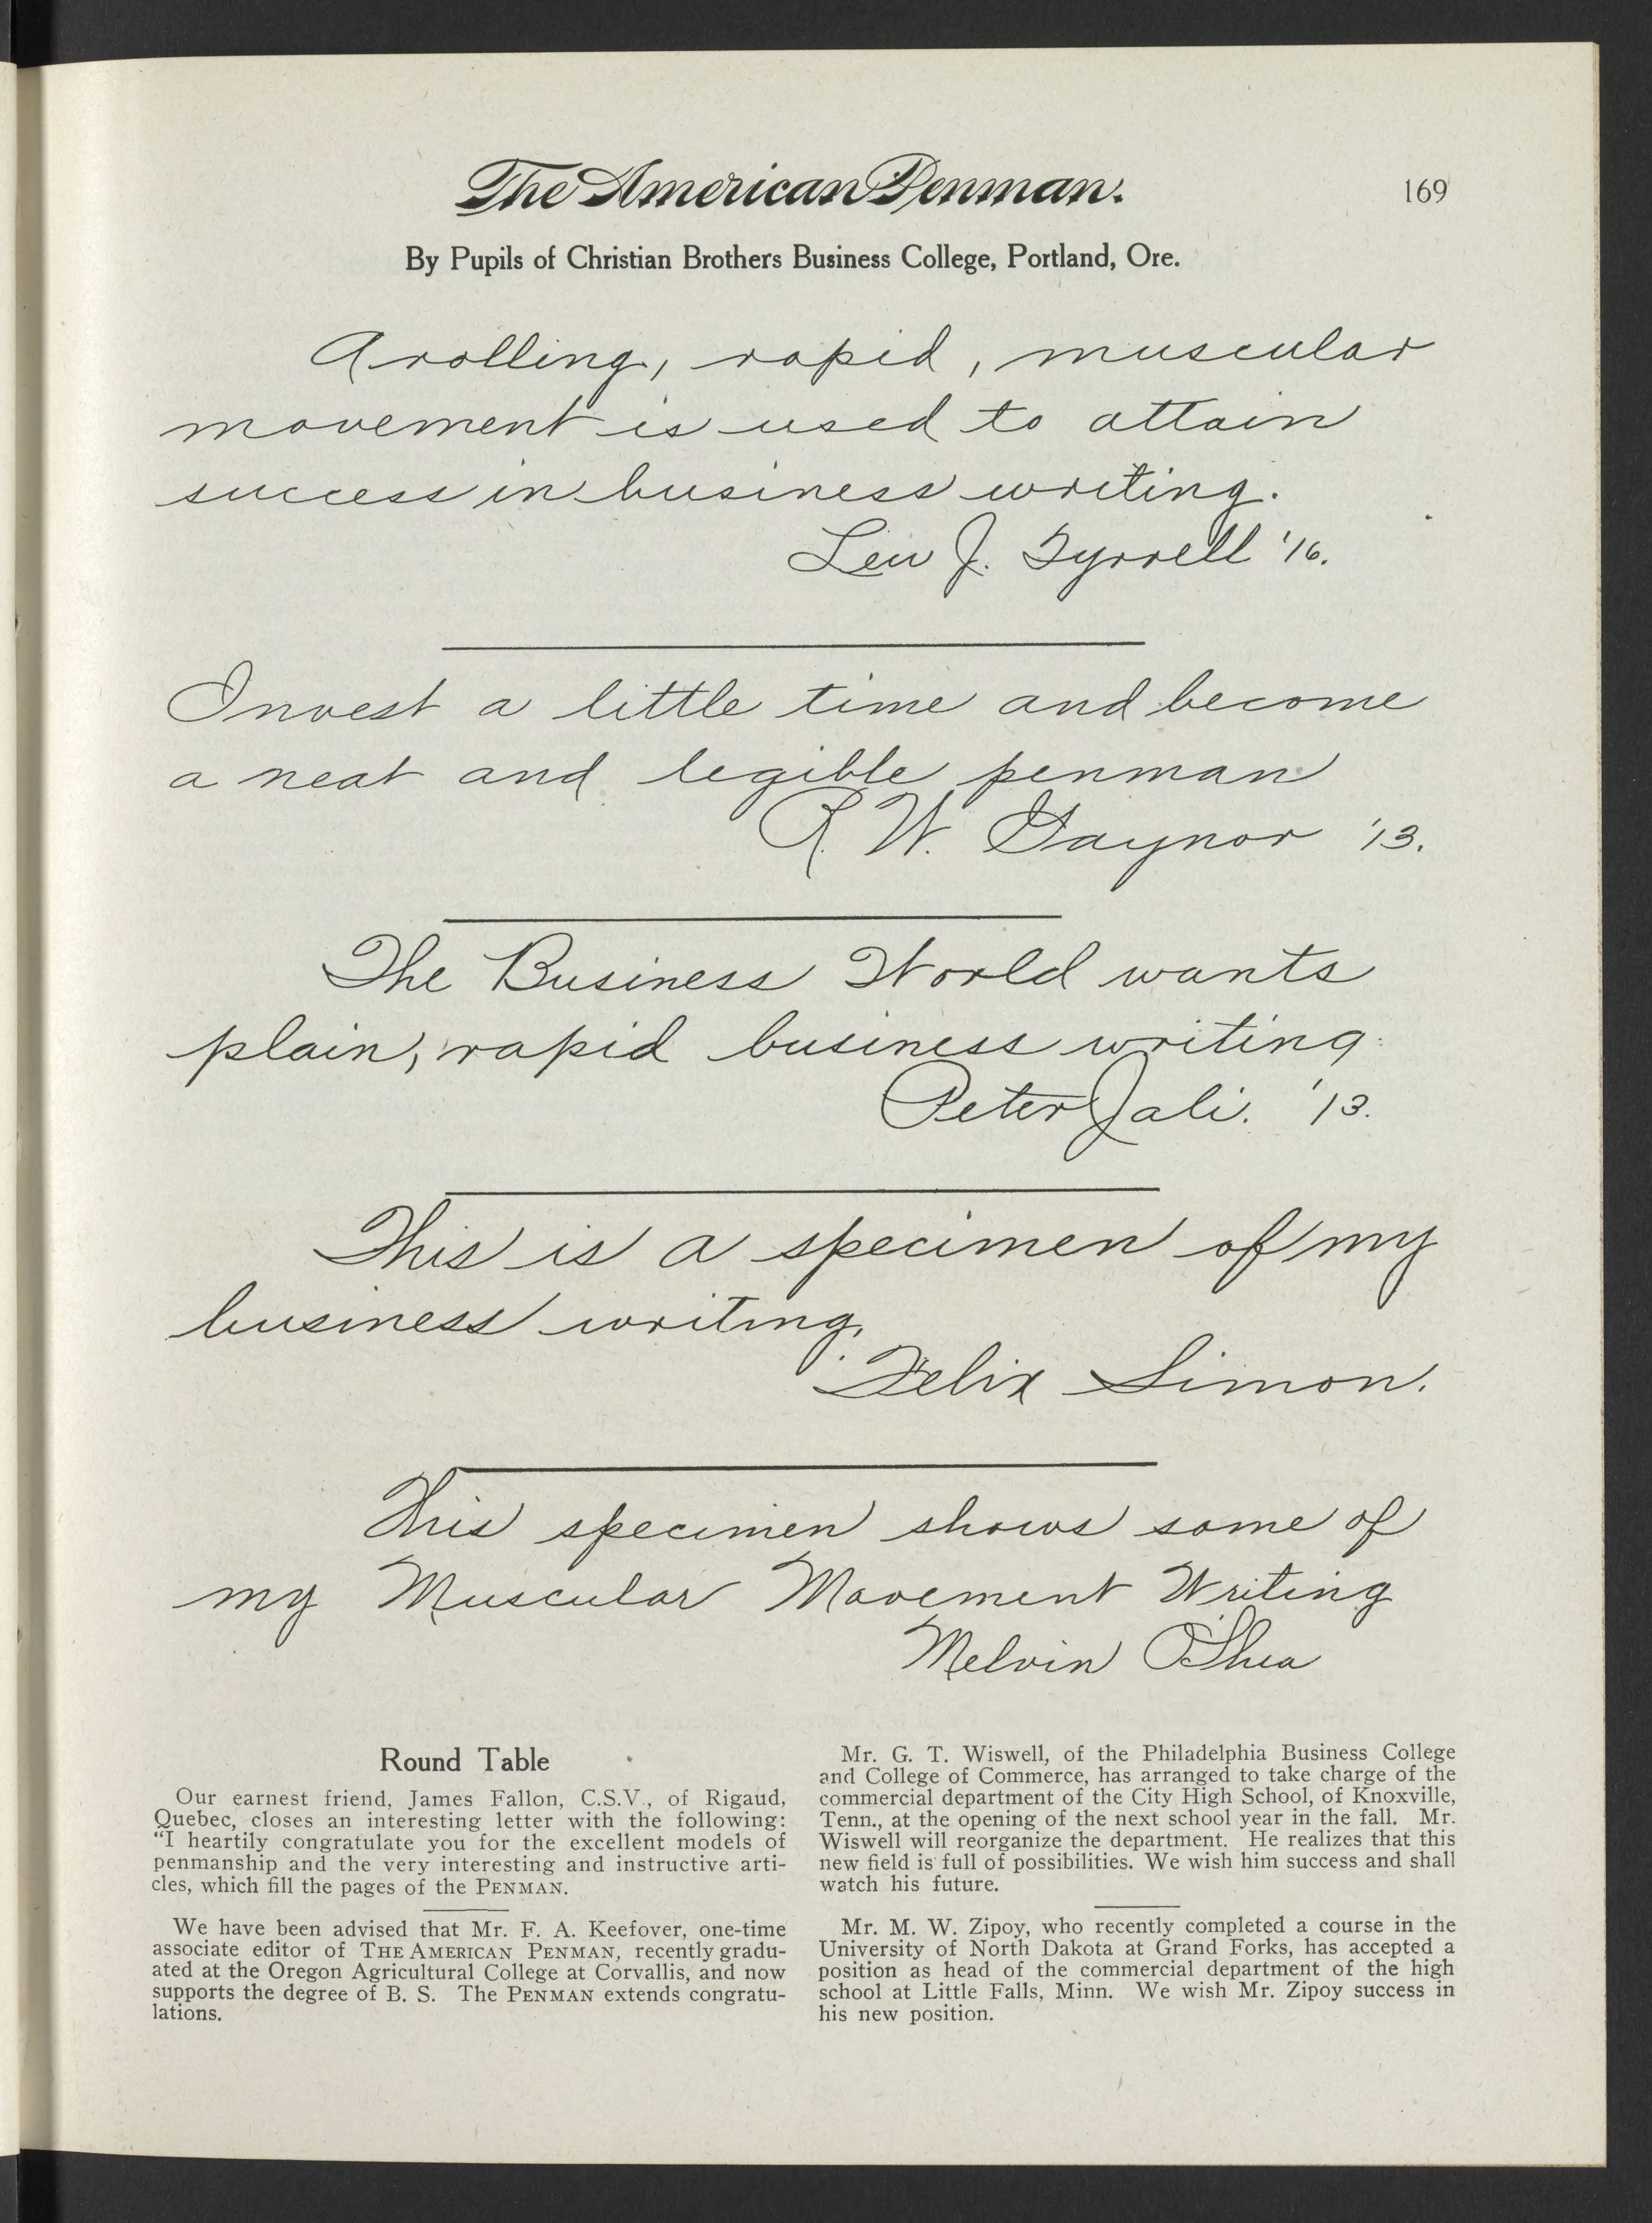 The American Penman.
169
By Pupils of Christian Brothers Business College, Portland, Ore.
A rolling, rapid, muscular
movement is used to attain
success in business writing.
Lew J. Tyrrell '16.
Invest a little time and become
a neat and legible penman
R. W. Gaynor '13.
The Business World wants
plain, rapid business writing.
Peter Jali. '13.
This is a specimen of my
business writing.
Felix Simon.
This specimen shows some of
my Muscular Movement Writing
Melvin O'Shea
Round Table
Our earnest friend, James Fallon, C.S.V., of Rigaud,
Quebec, closes an interesting letter with the following:
“I heartily congratulate you for the excellent models of
penmanship and the very interesting and instructive arti-
cles, which fill the pages of the PENMAN.
We have been advised that Mr. F. A. Keefover, one-time
associate editor of THE AMERICAN PENMAN, recently gradu-
ated at the Oregon Agricultural College at Corvallis, and now
supports the degree of B. S. The PENMAN extends congratu-
lations.
Mr. G. T. Wiswell, of the Philadelphia Business College
and College of Commerce, has arranged to take charge of the
commercial department of the City High School, of Knoxville,
Tenn., at the opening of the next school year in the fall. Mr.
Wiswell will reorganize the department. He realizes that this
new field is full of possibilities. We wish him success and shall
watch his future.
Mr. M. W. Zipoy, who recently completed a course in the
University of North Dakota at Grand Forks, has accepted a
position as head of the commercial department of the high
school at Little Falls, Minn. We wish Mr. Zipoy success in
his new position.